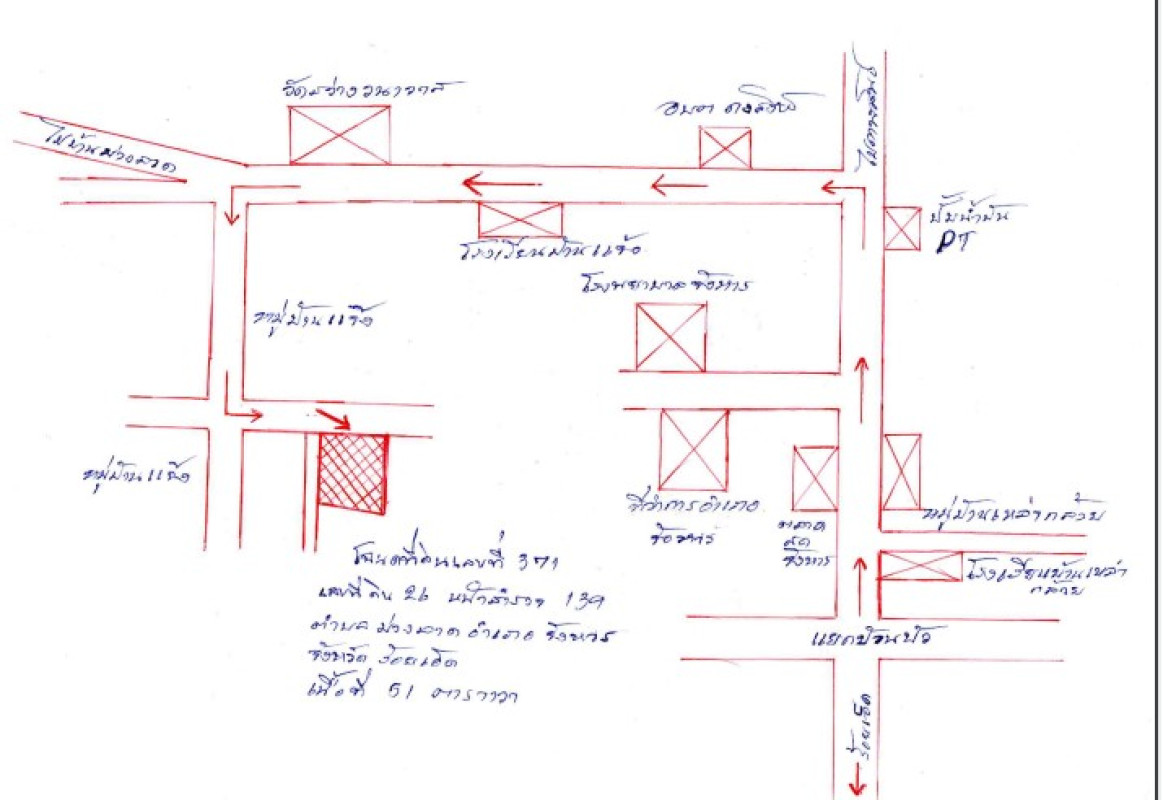 วัดสว่างอนาจาส
อบต ดงสิงห์
ไปกาฬสินธุ์
ไปบ้านม่วงลาด
ปั้มน้ำมัน
PT
โรงเรียนบ้านแจ้ง
โรงพยาบาล จังหาร
หมู่บ้านแจ้ง
หมู่บ้านแจ้ง
ที่ว่าการอำเภอ
จังหาร
ตลาด
สด
จังหาร
หมู่บ้านเหล่ากล้วย
โรงเรียนบ้านเหล่า
กล้วย
โฉนดที่ดินเลขที่ 371
เลขที่ดิน 26 หน้าสำรวจ 139
ตำบล ม่วงลาด อำเภอ จังหาร
จังหวัด ร้อยเอ็ด
เนื้อที่ 51 ตารางวา
แยกป้อนบัว
ร้อยเอ็ด